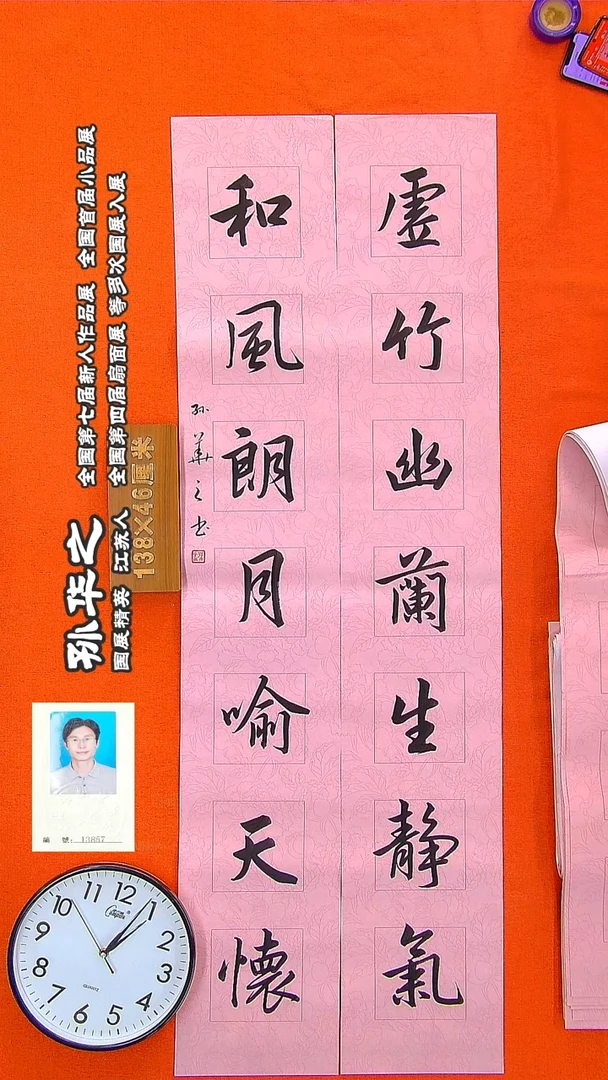 虚竹幽蘭生静氣
和風朗月喻天懷
孙華之书
孙华之
全国第七届新人作品展 全国首届小品展
国展精英 江苏人 全国第四届扇面展 等多次国展入展
138×46厘米
編 號: 13857
12
1
2
3
4
5
6
7
8
9
10
11
QUARTZ